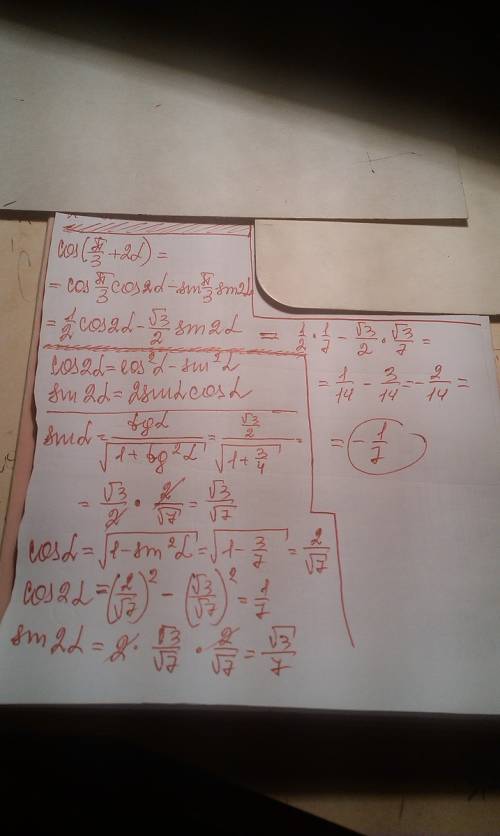 cos(π/3 + 2α) =
= cos π/3 cos2α - sin π/3 sin2α
= 1/2 cos2α - √3/2 sin2α = 1/2 · 1/7 - √3/2 · √3/7 =
= 1/14 - 3/14 = - 2/14 =
= - 1/7
cos2α = cos²α - sin²α
sin2α = 2sinα cosα
sinα = tgα/√(1 + tg²α) = (√3/2)/√(1 + 3/4) =
= √3/2 · 2/√7 = √3/√7
cosα = √(1 - sin²α) = √(1 - 3/7) = 2/√7
cos2α = (2/√7)² - (√3/√7)² = 1/7
sin2α = 2 · √3/√7 · 2/√7 = √3/7